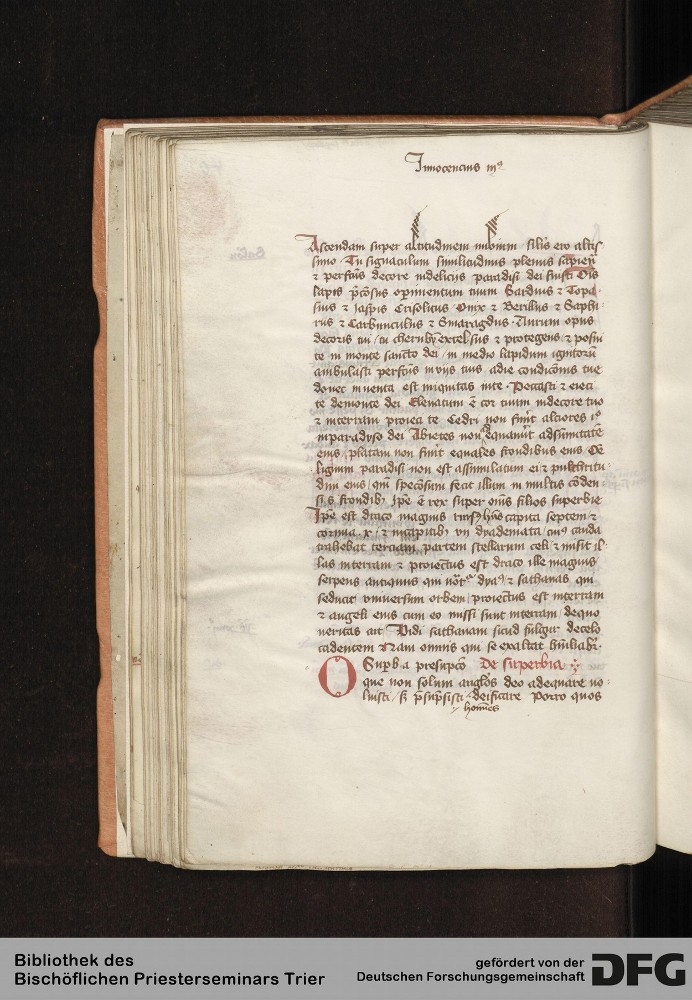 Innocencius iijꝰ
Ascendam super altitudinem nubium silis ero altis
simo Tu signaculum similitudinis plenus sapien
⁊ perfcus decore in delicijs paradisi dei fuisti Ois
lapis p̄cosus opimentum tuum Sardius ⁊ Topa
sius ⁊ Jaspis Crisolicus Onix ⁊ Berillus ⁊ Saphi
rus ⁊ Carbunculus ⁊ Smaragdus Aurum opus
decoris tui tu cherub extelsus ⁊ protegens ⁊ posui
te in monte sancto dei in medio lapidum ignitoru
ambulasti perfcus in vijs tuis adie condicōnis tue
donec inventa est iniquitas in te Peccasti ⁊ eieci
te de monte dei Elevatum ē cor tuum in decore tuo
⁊ in terram proieci te Cedri non funt alciores
in paradyso dei Abietes non equanut ad sumitatē
eius platani non funt equales frondibus eius Oē
lignum paradisi non est assimilatum ei ⁊ pulchritu
dini eius qm̄ speciosum fecit illum in multis conden
sis frondib Ipe ē rex super om̄s filios superbie
Ipe est draco magnus rufꝰ hn̄s capita septem ⁊
cornua x ⁊ in capitibꝫ vij dyademata cuiꝰ cauda
trahebat terciam partem stellarum celi ⁊ misit il
las in terram ⁊ proiectus est draco ille magnus
serpens antiquus qui dyaꝰ ⁊ sathanas qui
seducit vniversum orbem proiectus est in terram
⁊ angeli eius cum eo missi sunt in terram de quo
veritas ait Vidi sathanam sicud fulgur de celo
cadentem Nam omnis qui se exaltat humiliabr
O Supba presupco De superbia
que non solum anglos deo adequare vo
luisti sꝫ p̄supsisti deificare Porro quos
homines
Bibliothek des
Bischöflichen Priesterseminars Trier
gefördert von der
Deutschen Forschungsgemeinschaft
DFG